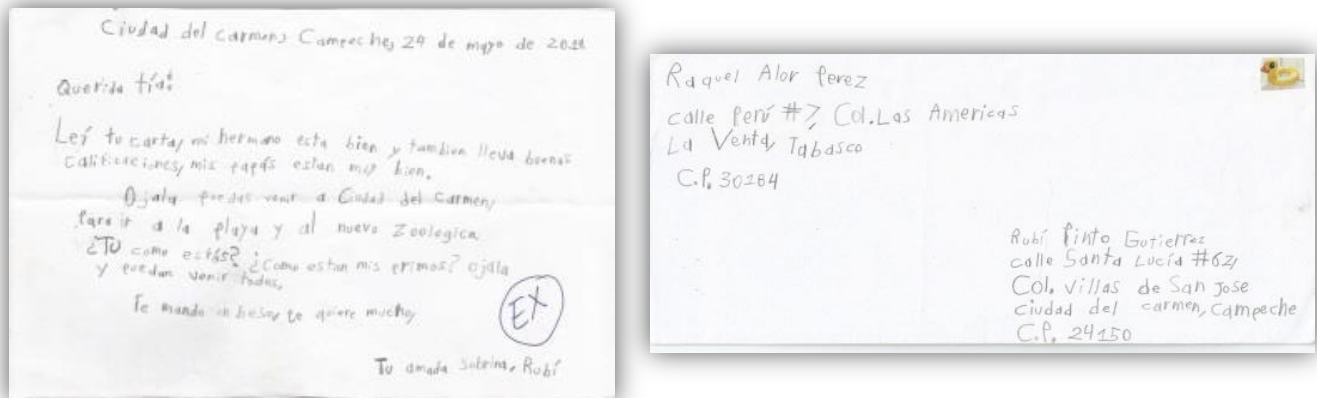 Ciudad del Carmen, Campeche, 24 de mayo de
Querida tía:
Leí tu carta, mi hermano esta bien y tambien lleva buenas
calificaciones, mis papás estan muy bien.
Ojala puedas venir a Ciudad del Carmen,
Para ir a la playa y al nuevo Zoologico.
¿TÚ como estás? ¿como estan mis primos? ojala
y puedan venir todos.
Te mando un beso, te quiere mucho,
EX
Tu amada sobrina, Rubí
Raquel Alor Perez
calle Perú #7, Col. Las Americas
La Venta, Tabasco
C.P. 30184
Rubí Pinto Gutierrez
calle Santa Lucía #62,
Col. villas de San Jose
Ciudad del carmen, Campeche
C.P. 24150